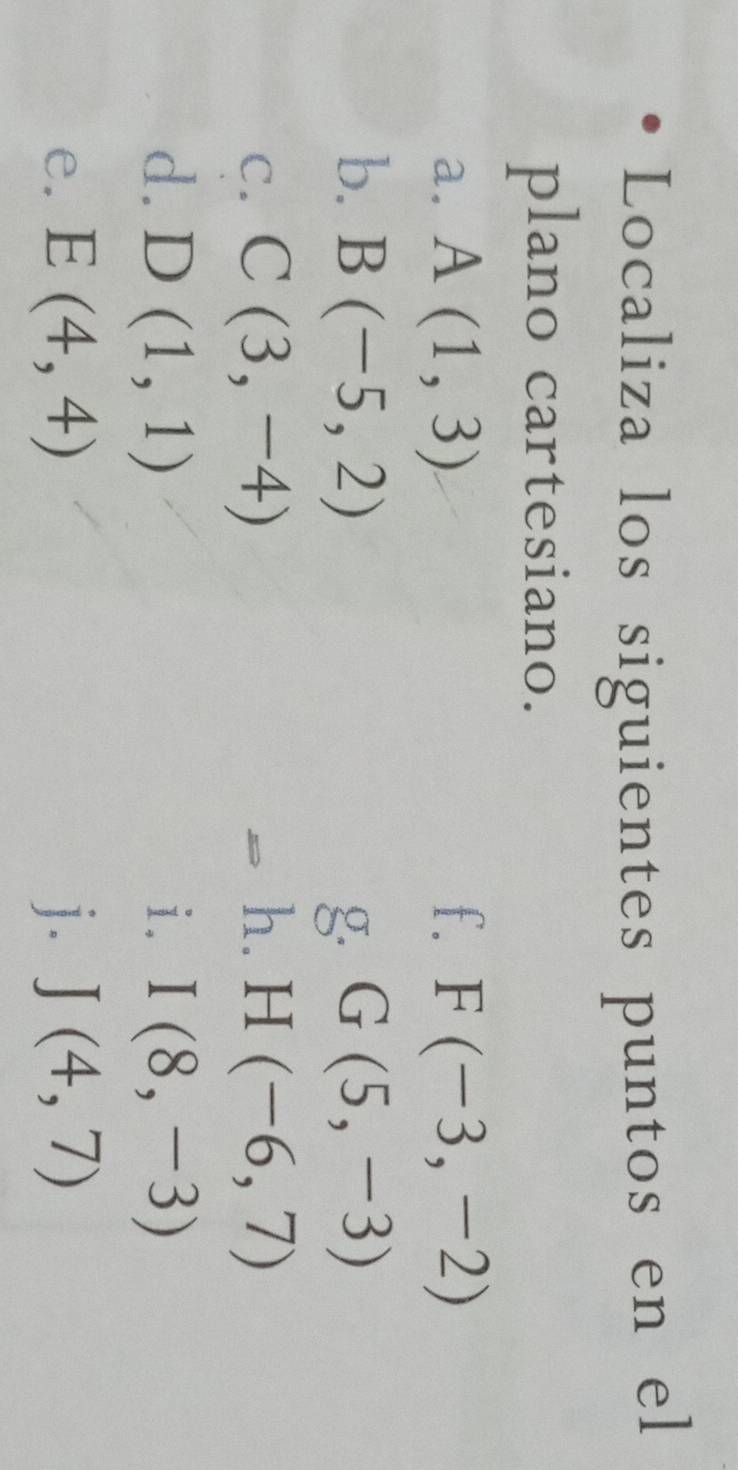 • Localiza los siguientes puntos en el
plano cartesiano.
a. A (1, 3)
b. B (−5, 2)
c. C (3, −4)
d. D (1, 1)
e. E (4, 4)
f. F (−3, −2)
g. G (5, −3)
h. H (−6, 7)
i. I (8, −3)
j. J (4, 7)